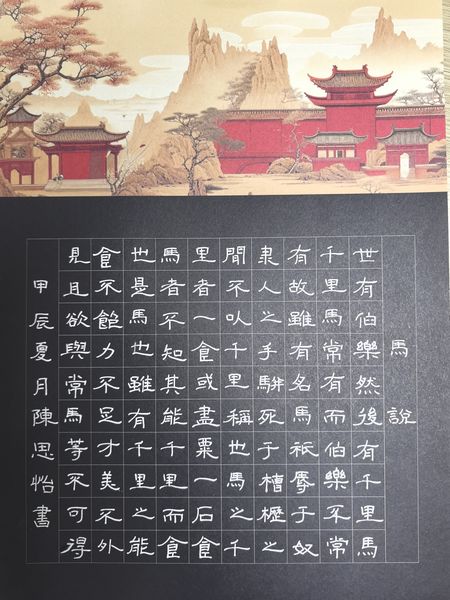 馬說
世有伯樂然後有千里馬
千里馬常有而伯樂不常
有故雖有名馬祇辱于奴
隶人之手駢死于槽櫪之
間不以千里稱也馬之千
里者一食或盡粟一石食
馬者不知其能千里而食
也是馬也雖有千里之能
食不飽力不足才美不外
見且欲與常馬等不可得
甲辰夏月陳思怡書